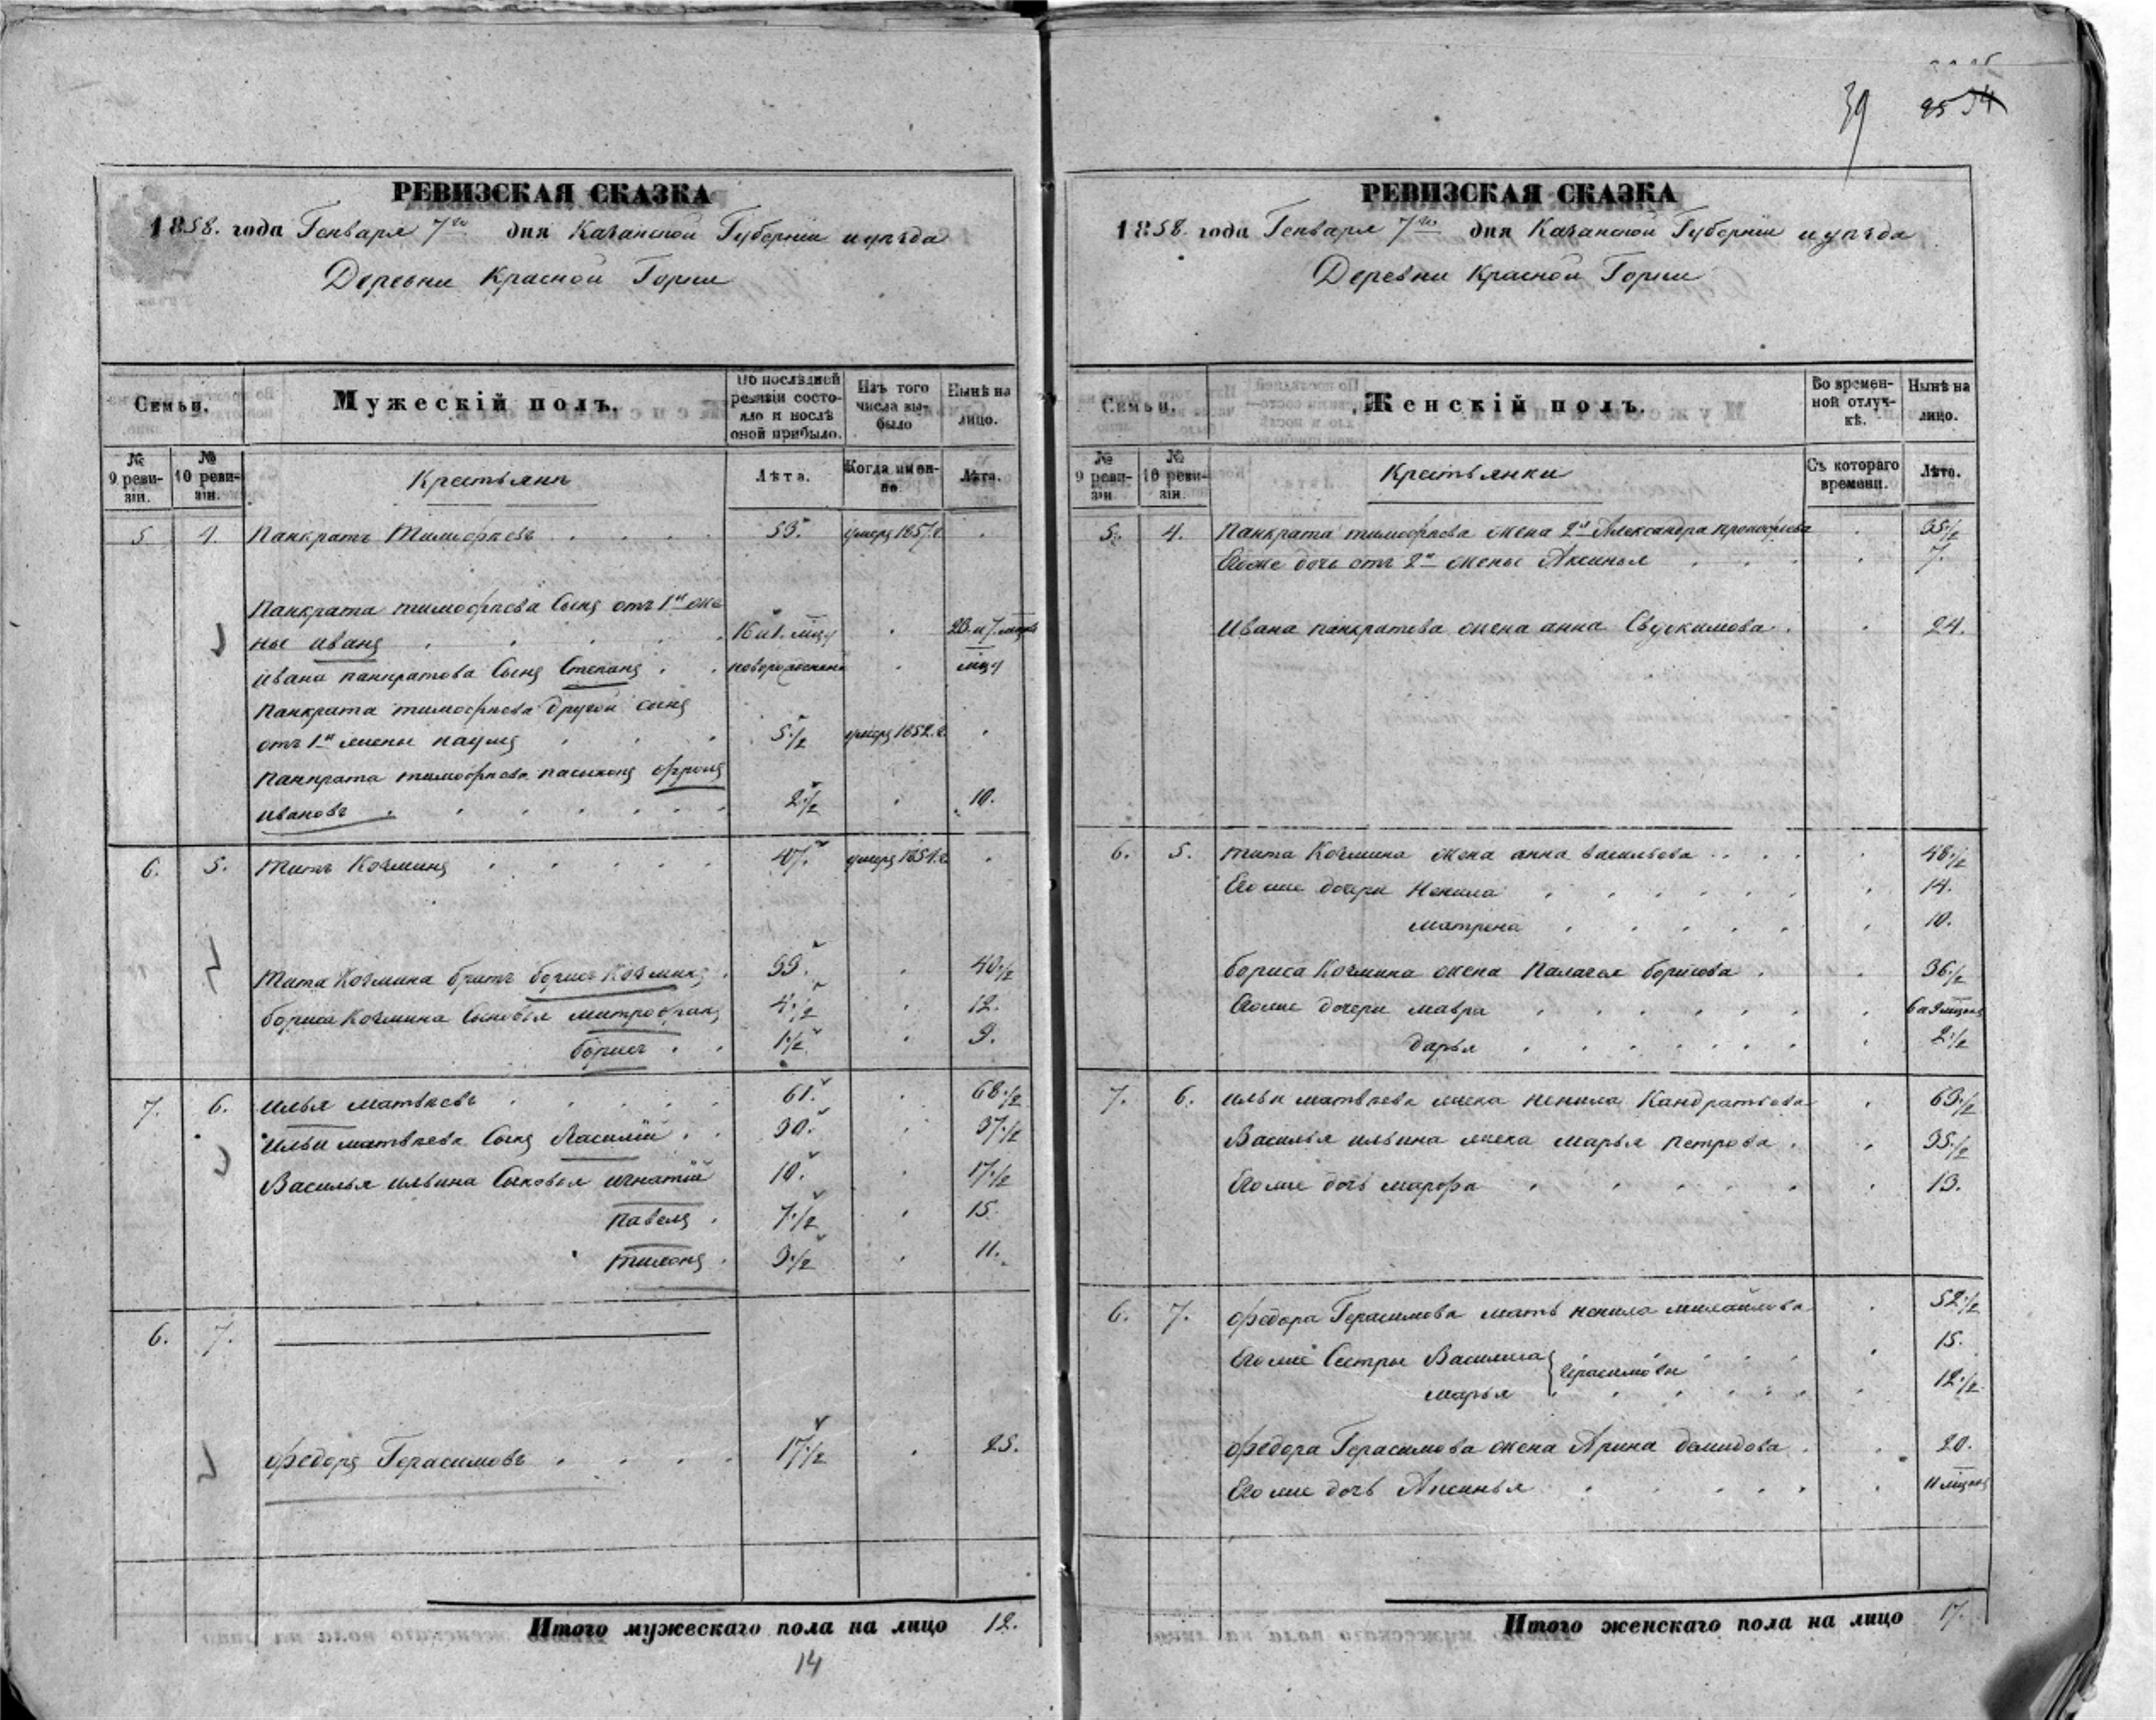 39 25 34
РЕВИЗСКАЯ СКАЗКА
1858. года Генваря 7го дня Казанской Губернии и уезда
Деревни Красной Горки
Семьи.
Мужескій полъ.
По послѣдней ревизіи состояло и послѣ оной прибыло.
Изъ того числа выбыло
Нынѣ на лицо.
№ 9 ревизіи.
№ 10 ревизіи.
Крестьяне
Лѣта.
Когда именно.
Лѣта.
5 4. Панкратъ Тимофеевъ 53. умеръ 1857. г.
Панкрата тимофеева Сынъ отъ 1й же
ны иванъ 16 и 1. мцъ 23. и 7. мцовъ
ивана панкратова Сынъ Степанъ новорожденъ мцъ
Панкрата тимофеева другой сынъ
отъ 1й жены наумъ 5 1/2 умеръ 1852. г.
Панкрата тимофеева пасынокъ фролъ
ивановъ 2 1/2 10.
6. 5. Титъ Козминъ 47. умеръ 1851. г.
Тита Козмина братъ борисъ Козминъ 33. 40 1/2
бориса Козмина Сыновья митрофанъ 4 1/2 12.
борисъ 1 1/2 9.
7. 6. илья матвеевъ 61. 68 1/2
ильи матвеева Сынъ Василій 30. 37 1/2
Василья ильина Сыновья игнатій 10. 17 1/2
павелъ 7 1/2 15.
тихонъ 3 1/2 11.
6. 7.
федоръ Герасимовъ 17 1/2 25.
Итого мужескаго пола на лицо 12.
14
РЕВИЗСКАЯ СКАЗКА
1858 года Генваря 7го дня Казанской Губернии и уезда
Деревни Красной Горки
Семьи.
Женскій полъ.
Во временной отлучкѣ.
Нынѣ на лицо.
№ 9 ревизіи.
№ 10 ревизіи.
Крестьянки
Съ котораго времени.
Лѣта.
5. 4. Панкрата тимофеева жена 2я Александра прокофьева 35 1/2
Егоже дочь отъ 2й жены Аксинья 7.
ивана панкратова жена анна Евдокимова 24.
6. 5. Тита Козмина жена анна васильева 48 1/2
Его же дочери Ненила 14.
матрена 10.
бориса Козмина жена Палагея борисова 36 1/2
Его же дочери мавра 6 и 9 мцовъ
дарья 2 1/2
7. 6. ильи матвеева жена ненила Кандратьева 63 1/2
Василья ильина жена марья петрова 35 1/2
Его же дочь марфа 13.
6. 7. федора Герасимова мать ненила михайлова 52 1/2
Его же Сестры Василиса } Герасимовы 15.
марья 12 1/2
федора Герасимова жена Арина демидова 20.
Его же дочь Аксинья 11 мцовъ
Итого женскаго пола на лицо 17.